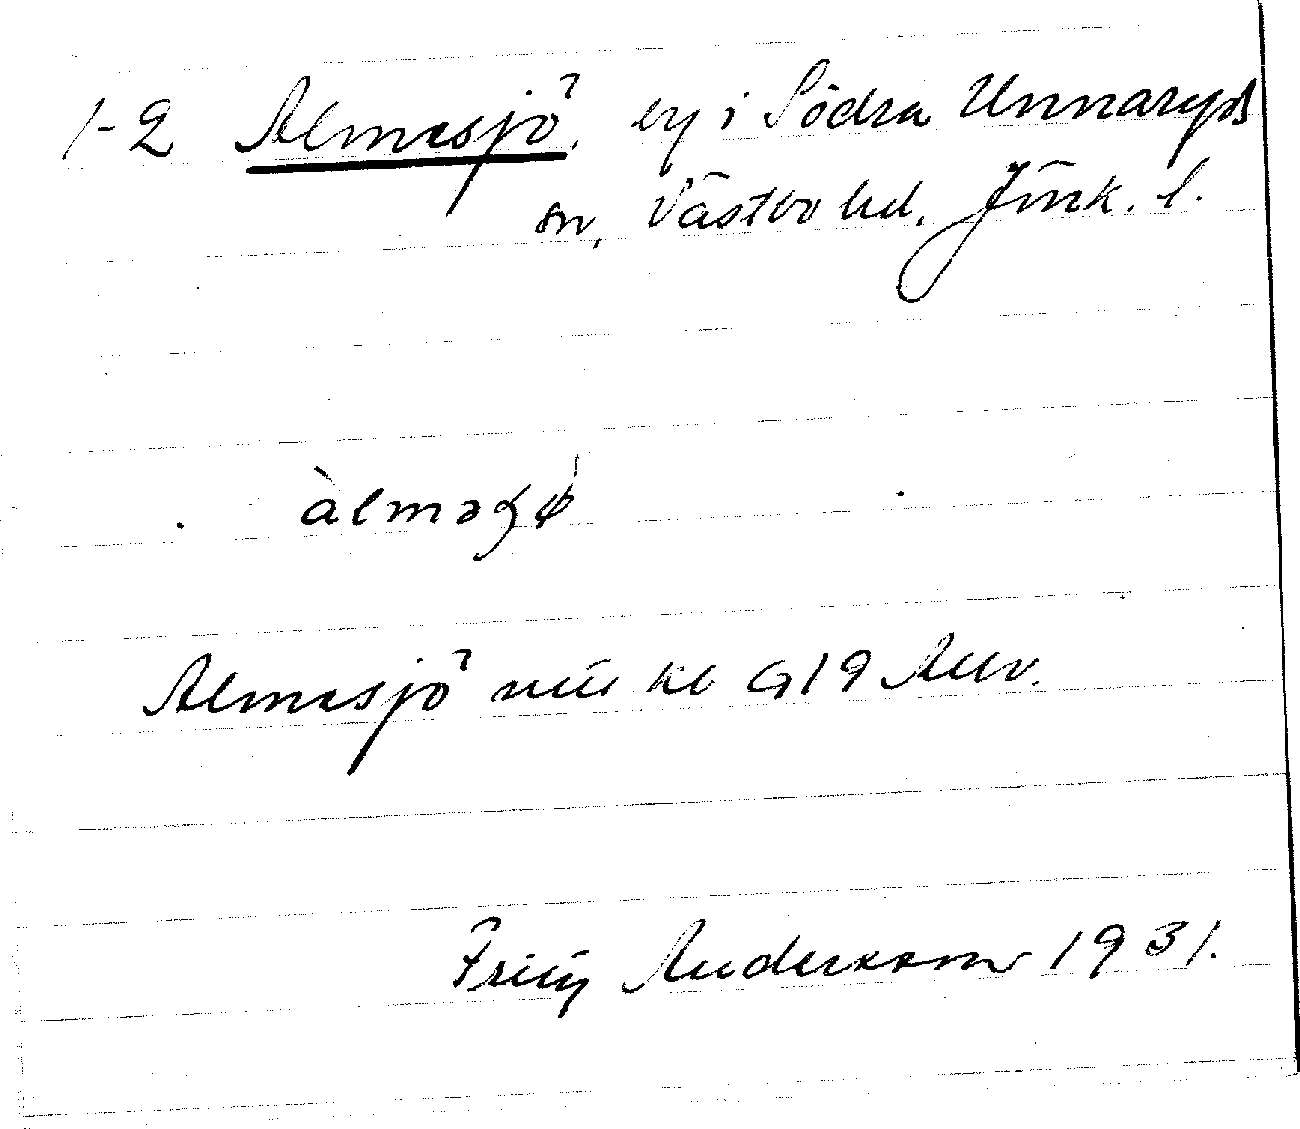 1-2 Almesjö, by i Södra Unnaryds
sn, Västbo hd, Jönk. l.
àlməʂø
Almesjö 919
Fritz Andersson 1931.